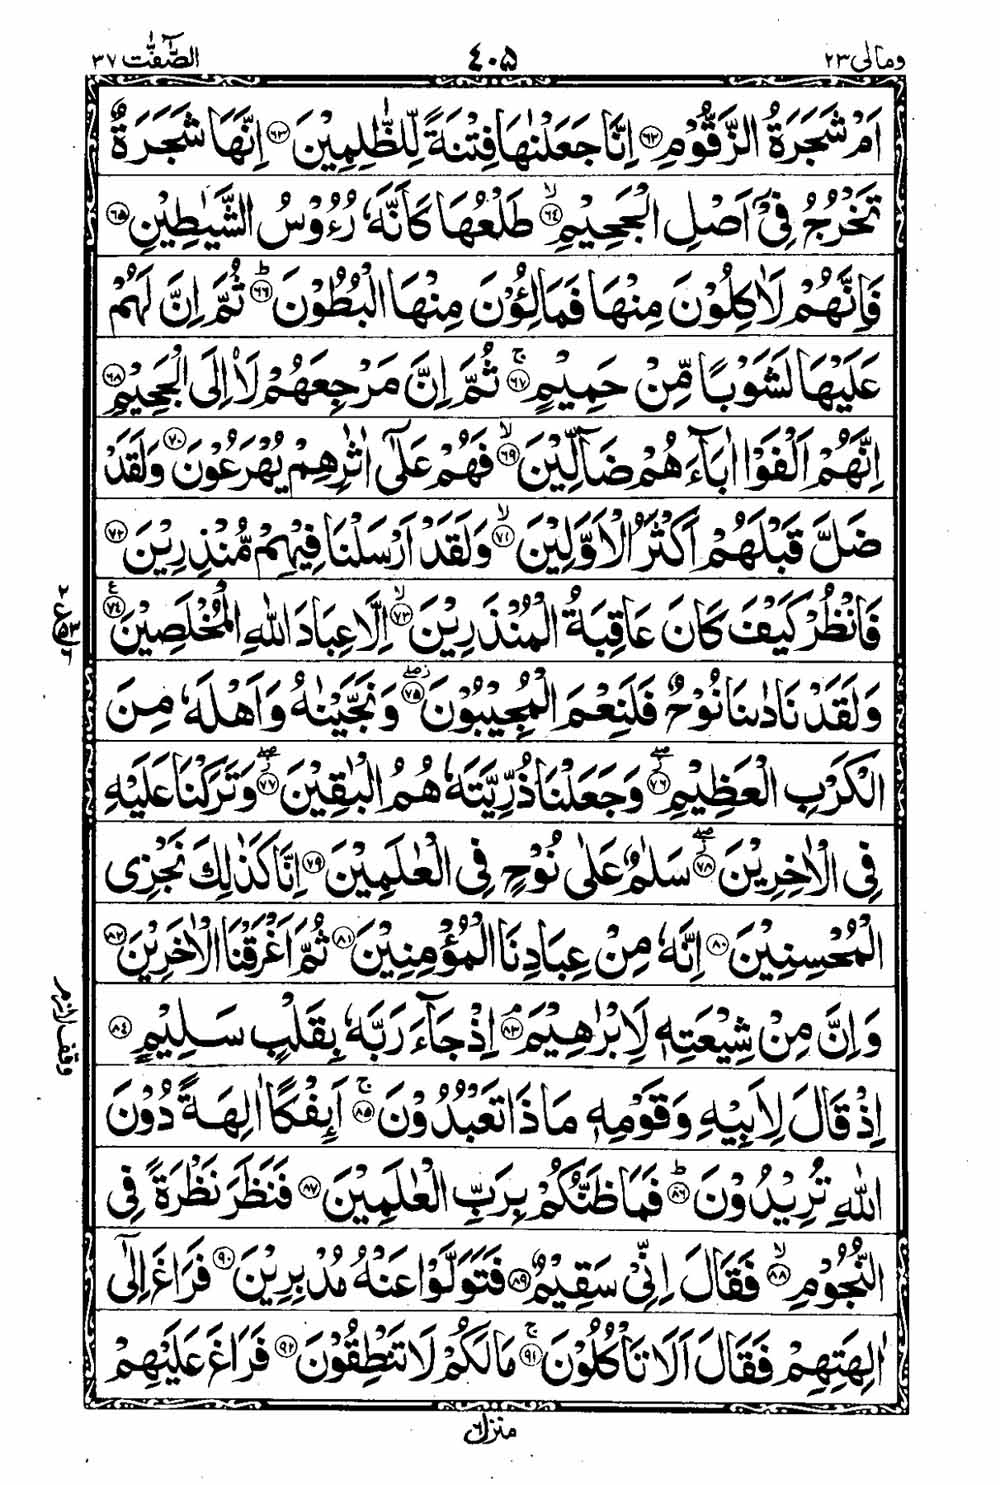 ومالی ٢٣ ٤٠٥ الصّٰٓفّٰت ٣٧
اَمْ شَجَرَةُ الزَّقُّوْمِ ﴿٦٢﴾ اِنَّا جَعَلْنٰهَا فِتْنَةً لِّلظّٰلِمِيْنَ ﴿٦٣﴾ اِنَّهَا شَجَرَةٌ
تَخْرُجُ فِيْۤ اَصْلِ الْجَحِيْمِ ﴿٦٤﴾ۙ طَلْعُهَا كَاَنَّهٗ رُءُوْسُ الشَّيٰطِيْنِ ﴿٦٥﴾
فَاِنَّهُمْ لَاٰكِلُوْنَ مِنْهَا فَمَالِـُٔوْنَ مِنْهَا الْبُطُوْنَ ﴿٦٦﴾ؕ ثُمَّ اِنَّ لَهُمْ
عَلَيْهَا لَشَوْبًا مِّنْ حَمِيْمٍ ﴿٦٧﴾ۚ ثُمَّ اِنَّ مَرْجِعَهُمْ لَا۟اِلَى الْجَحِيْمِ ﴿٦٨﴾
اِنَّهُمْ اَلْفَوْا اٰبَآءَهُمْ ضَآلِّيْنَ ﴿٦٩﴾ۙ فَهُمْ عَلٰٓى اٰثٰرِهِمْ يُهْرَعُوْنَ ﴿٧٠﴾ وَلَقَدْ
ضَلَّ قَبْلَهُمْ اَكْثَرُ الْاَوَّلِيْنَ ﴿٧١﴾ۙ وَلَقَدْ اَرْسَلْنَا فِيْهِمْ مُّنْذِرِيْنَ ﴿٧٢﴾
فَانْظُرْ كَيْفَ كَانَ عَاقِبَةُ الْمُنْذَرِيْنَ ﴿٧٣﴾ۙ اِلَّا عِبَادَ اللّٰهِ الْمُخْلَصِيْنَ ﴿٧٤﴾ع
وَلَقَدْ نَادٰىنَا نُوْحٌ فَلَنِعْمَ الْمُجِيْبُوْنَ ﴿٧٥﴾ۖ وَنَجَّيْنٰهُ وَاَهْلَهٗ مِنَ
الْكَرْبِ الْعَظِيْمِ ﴿٧٦﴾ۖ وَجَعَلْنَا ذُرِّيَّتَهٗ هُمُ الْبٰقِيْنَ ﴿٧٧﴾ۖ وَتَرَكْنَا عَلَيْهِ
فِى الْاٰخِرِيْنَ ﴿٧٨﴾ۖ سَلٰمٌ عَلٰى نُوْحٍ فِى الْعٰلَمِيْنَ ﴿٧٩﴾ اِنَّا كَذٰلِكَ نَجْزِى
الْمُحْسِنِيْنَ ﴿٨٠﴾ اِنَّهٗ مِنْ عِبَادِنَا الْمُؤْمِنِيْنَ ﴿٨١﴾ ثُمَّ اَغْرَقْنَا الْاٰخَرِيْنَ ﴿٨٢﴾
وَاِنَّ مِنْ شِيْعَتِهٖ لَاِبْرٰهِيْمَ ﴿٨٣﴾ۘ اِذْ جَآءَ رَبَّهٗ بِقَلْبٍ سَلِيْمٍ ﴿٨٤﴾
وقف لازم
اِذْ قَالَ لِاَبِيْهِ وَقَوْمِهٖ مَاذَا تَعْبُدُوْنَ ﴿٨٥﴾ۚ اَىِٕفْكًا اٰلِهَةً دُوْنَ
اللّٰهِ تُرِيْدُوْنَ ﴿٨٦﴾ؕ فَمَا ظَنُّكُمْ بِرَبِّ الْعٰلَمِيْنَ ﴿٨٧﴾ فَنَظَرَ نَظْرَةً فِى
النُّجُوْمِ ﴿٨٨﴾ۙ فَقَالَ اِنِّىْ سَقِيْمٌ ﴿٨٩﴾ فَتَوَلَّوْا عَنْهُ مُدْبِرِيْنَ ﴿٩٠﴾ فَرَاغَ اِلٰٓى
اٰلِهَتِهِمْ فَقَالَ اَلَا تَاْكُلُوْنَ ﴿٩١﴾ۚ مَا لَكُمْ لَا تَنْطِقُوْنَ ﴿٩٢﴾ فَرَاغَ عَلَيْهِمْ
منزل ٦